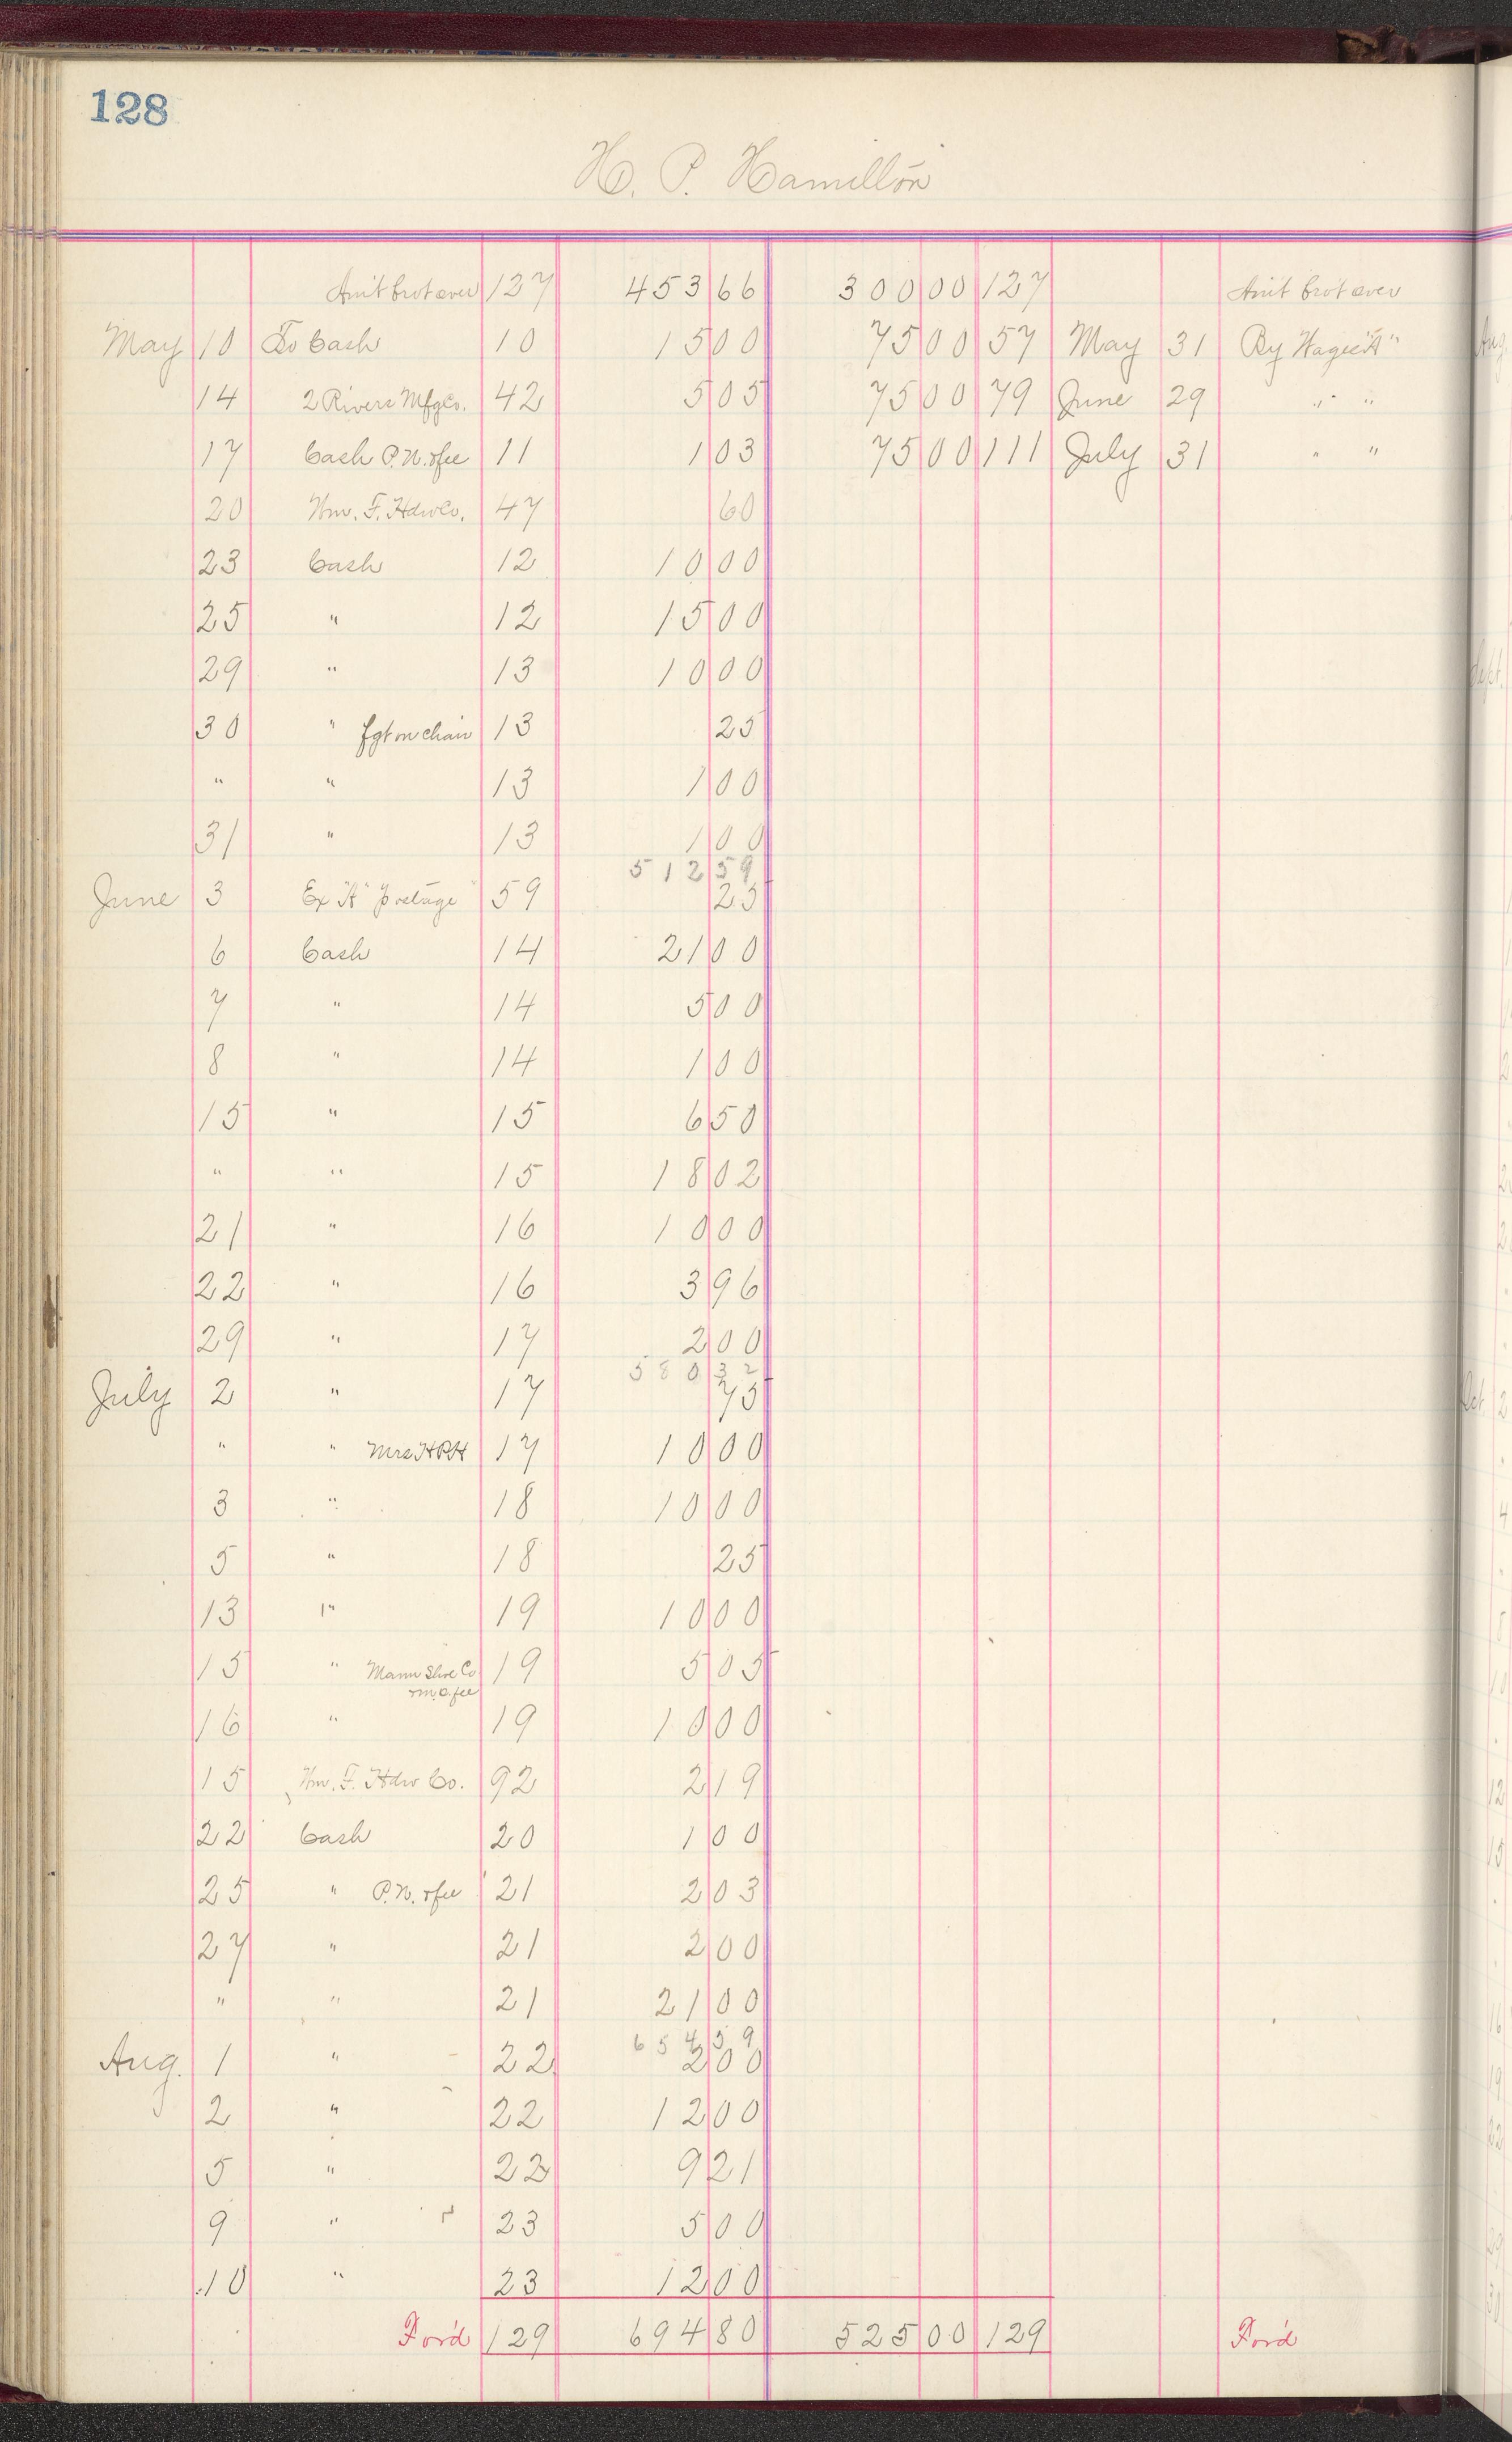 128
H. P. Hamilton
Am't brot over 127 453 66 300 00 127 Am't brot over
May 10 To Cash 10 15 00 75 00 57 May 31 By Wages "A"
14 2 Rivers Mfg Co. 42 5 05 75 00 79 June 29 " "
17 Cash P.N. & fee 11 1 03 75 00 111 July 31 " "
20 Wm. F. Hdw Co. 47 60
23 Cash 12 10 00
25 " 12 15 00
29 " 13 10 00
30 " fgt on chair 13 25
" " 13 1 00
31 " 13 1 00
512 59
June 3 Ex "A" postage 59 25
6 Cash 14 21 00
7 " 14 5 00
8 " 14 1 00
15 " 15 6 50
" " 15 18 02
21 " 16 10 00
22 " 16 3 96
29 " 17 2 00
580 32
July 2 " 17 75
" " Mrs HPH 17 10 00
3 " 18 10 00
5 " 18 25
13 " 19 10 00
15 " Mann Shoe Co 19 5 05
m.o. fee
16 " 19 10 00
15 Wm. F. Hdw Co. 92 2 19
22 Cash 20 1 00
25 " P.N. & fee 21 2 03
27 " 21 2 00
" " 21 21 00
654 59
Aug. 1 " 22 2 00
2 " 22 12 00
5 " 22 9 21
9 " 23 5 00
10 " 23 12 00
For'd 129 694 80 525 00 129 For'd